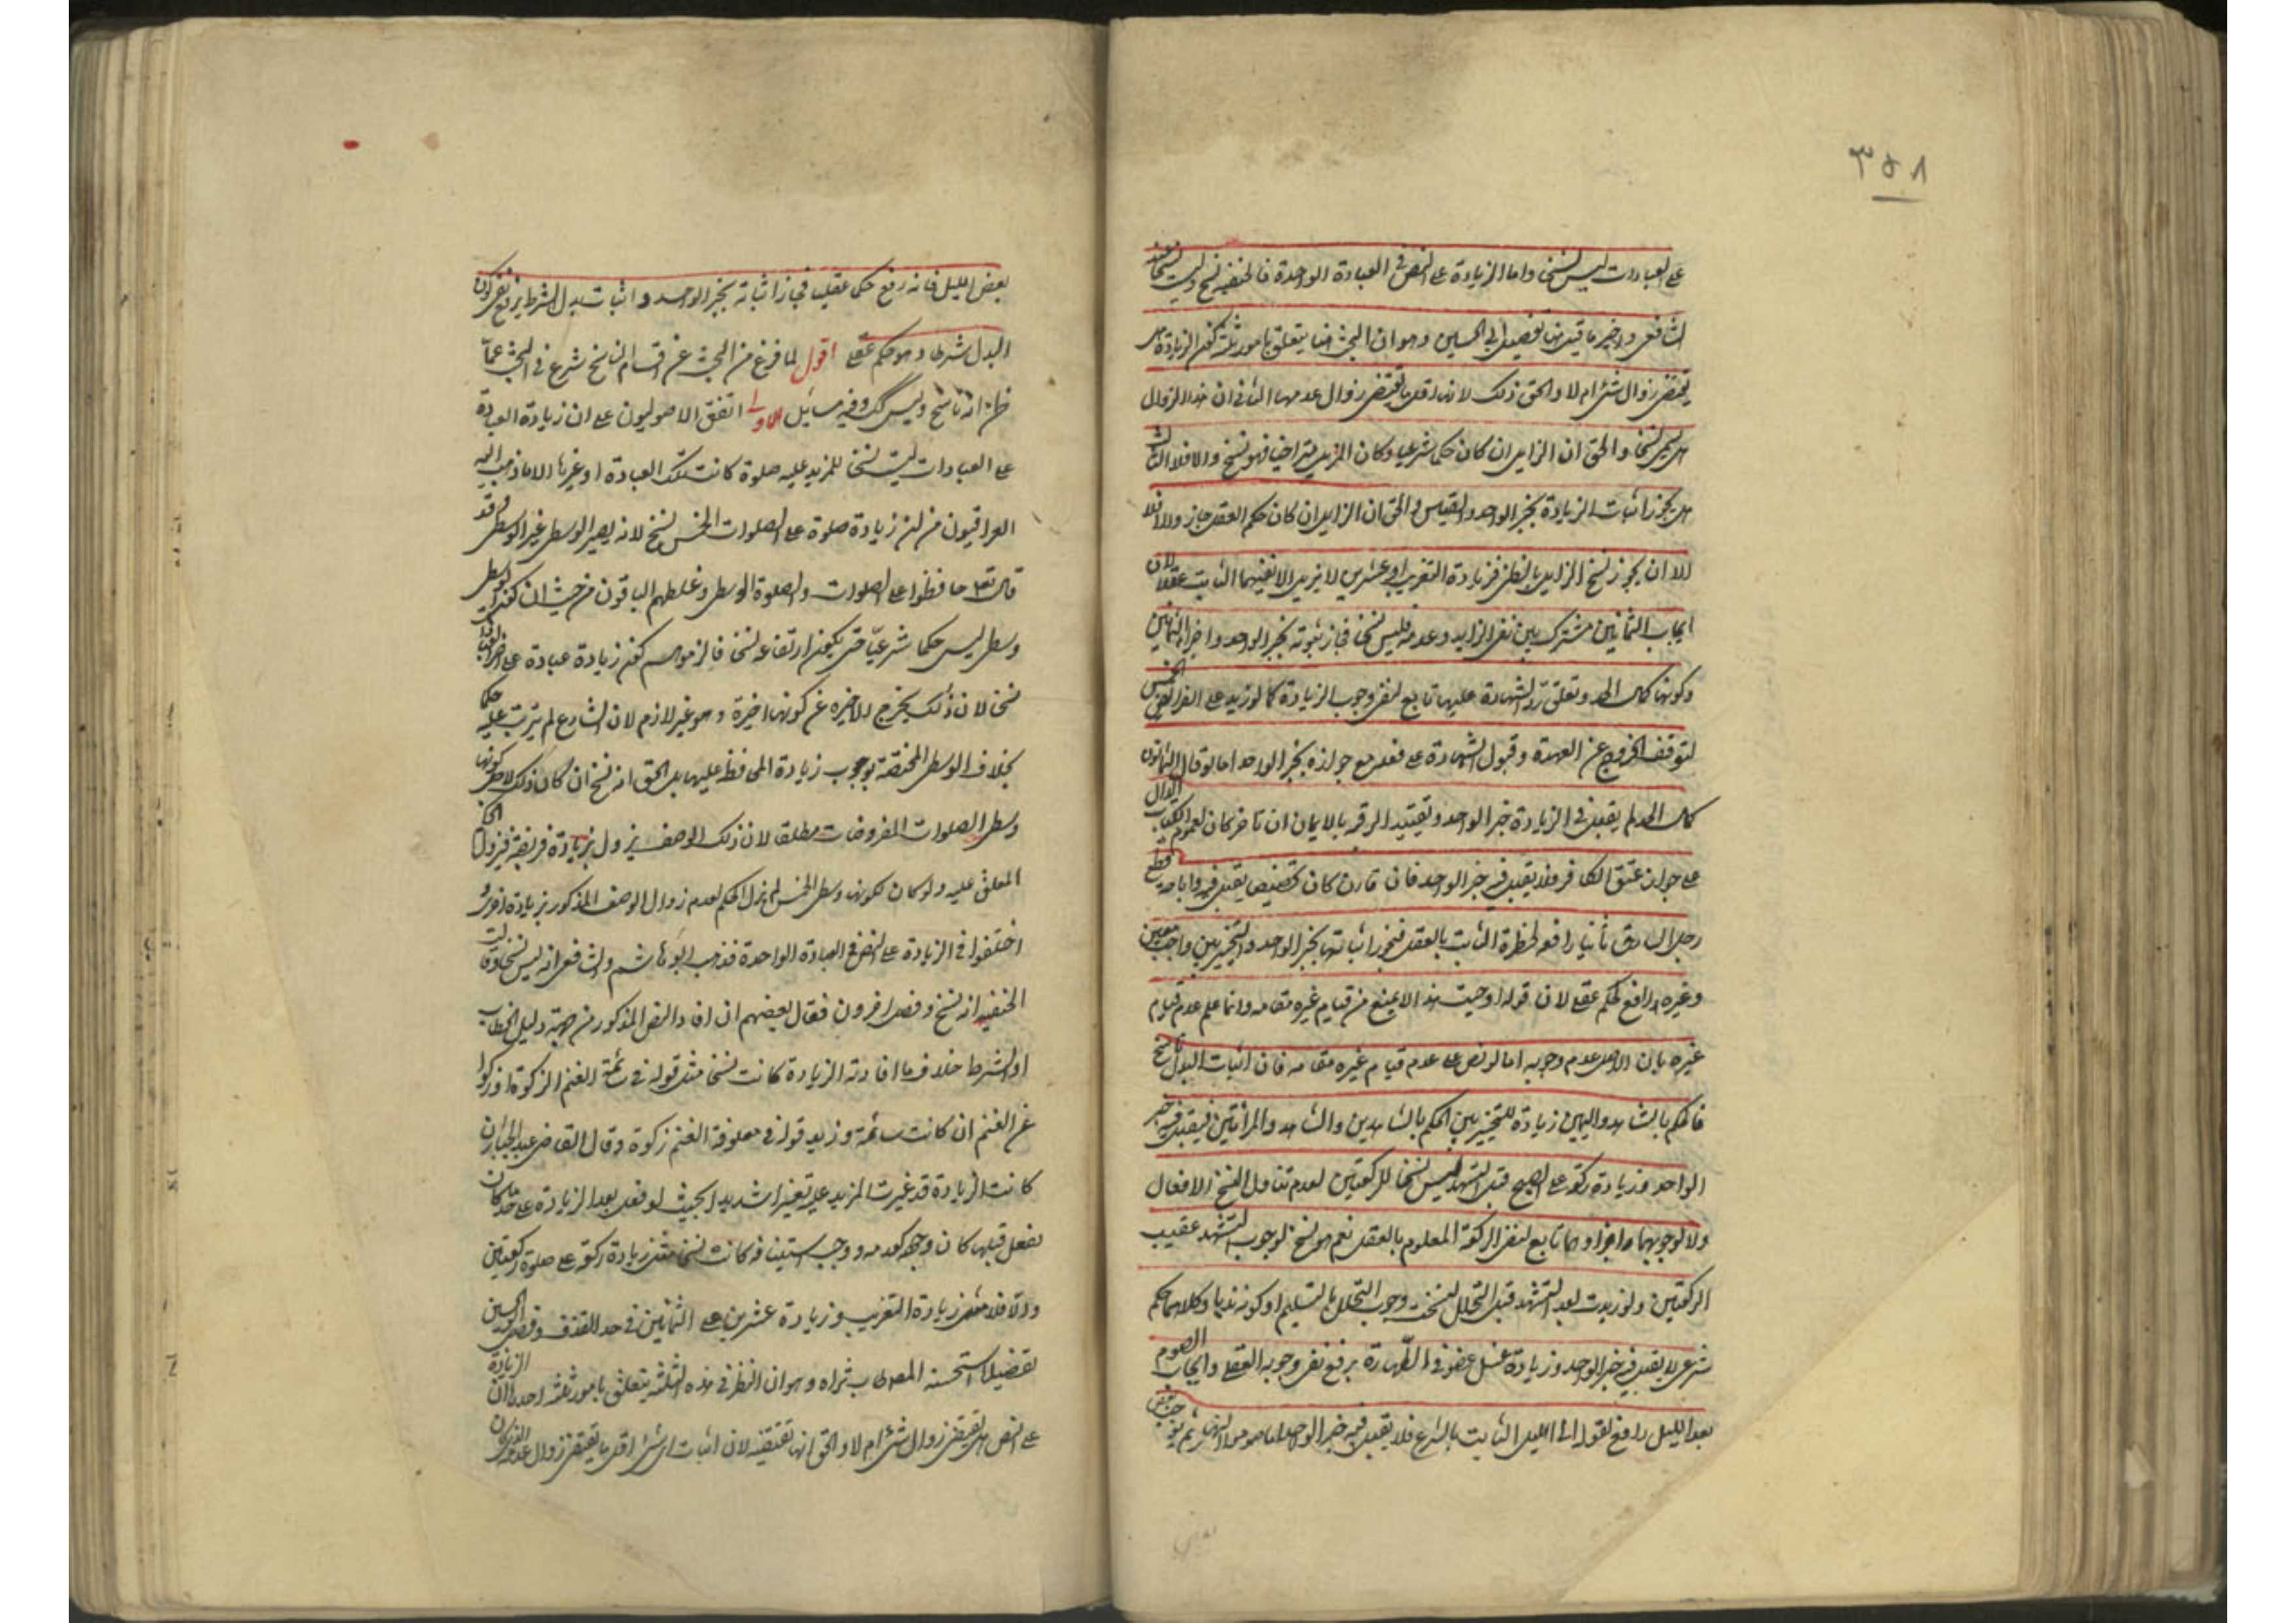 ٣٥٨
على العبادات ليس نسخا واما الزيادة على النص فى العبادة الواحدة فالحنفية نسخ وليست نسخا عند
الشافعى واخير ما قيل منها تفصيل ابى الحسين وهو ان البحث هنا يتعلق بامور ثلثة كون الزيادة هل
يقتضى زوال شئ ام لا والحق ذلك لانه اقل ما يقتضى زوال عدمها الثانى ان هذا الزوال
هل يسمى نسخا والحق ان الزايل ان كان حكما شرعيا وكان المزيل متراخيا فهو نسخ والا فلا الثالث
هل يجوز اثبات الزيادة بخبر الواحد والقياس والحق ان الزايل ان كان حكم العقل جاز والا فلا
الا ان يجوز نسخ الزايل بالظن فزيادة التغريب او عشرين لا يزيل الا نفيهما الثابت عقلا لان
ايجاب الثمانين مشترك بين نفى الزايد وعدمه فليس نسخا فجاز ثبوته بخبر الواحد واجزاء الثمانين
وكونها كمال الحد وتعلق رد الشهادة عليها تابع لنفى وجوب الزيادة كما لو زيد على الفرائض الخمس
لتوقف الخروج عن العهدة وقبول الشهادة على فعله مع جوازه بخبر الواحد اما لو قال الثمانون
كمال الحد لم يقبل فى الزيادة خبر الواحد وتقييد الرقبة بالايمان ان تاخر كان لعموم الكتاب الدال
على جواز عتق الكافر فلا يقبل فيه خبر الواحد فان قارن كان تخصيصا يقبل فيه واباحة قطع
رجل السارق ثانيا رافعه لحظره الثابت بالعقل فيجوز اثباتها بخبر الواحد والتخيير بين واجب معين
وغيره رافع لحكم عقلى لان قوله اوجبت هذا لا يمنع من قيام غيره مقامه وانما علم عدم قيام
غيره بان الاصل عدم وجوبه اما لو نص على عدم قيام غيره مقامه فان اثبات البدل ناسخ
فالحكم بالشاهد واليمين زيادة للتخيير بين الحكم بالشاهدين والشاهد والمراتين فيقبل فيه خبر
الواحد وزيادة ركعة على الصبح قبل التشهد ليس نسخا للركعتين لعدم تناول النسخ الافعال
ولا لوجوبهما واجزاؤهما تابع لنفى الركعة المعلوم بالعقل نعم هو نسخ لوجوب التشهد عقيب
الركعتين ولو زيدت بعد التشهد قبل التحلل لنسخت وجوب التحلل بالتسليم او كونه ندبا وكلاهما حكم
شرعى لا يقبل فيه خبر الواحد وزيادة غسل عضو فى الطهارة يرفع نفى وجوبه العقلى وايجاب الصوم
بعد الليل رافع لقوله الى الليل الثابت بالشرع فلا يقبل فيه خبر الواحد اما صوموا النهار ثم يوجب بعض
بعض الليل فانه رفع حكما عقليا فجاز اثباته بخبر الواحد واثبات بدل الشرط يرفع نفى كون
البدل شرطا وهو حكم عقلى اقول لما فرغ من البحث عن اقسام الناسخ شرع فى البحث عما
ظن انه ناسخ وليس كك وفيه مسايل الاولى اتفق الاصوليون على ان زيادة العبادة
على العبادات ليست نسخا للمزيد عليه صلوة كانت تلك العبادة او غيرها الا ما ذهب اليه
العراقيون من ان زيادة صلوة على الصلوات الخمس نسخ لانه يصير الوسطى غير الوسطى وقد
قال تع حافظوا على الصلوات والصلوة الوسطى وغلطهم الباقون من حيث ان كون الوسطى
وسطى ليس حكما شرعيا حتى يكون ارتفاعه نسخا فالزموهم كون زيادة عبادة على اخر العبادات
نسخا لان ذلك يخرج الاخيرة عن كونها اخيرة وهو غير لازم لان الشارع لم يترتب عليه حكما
بخلاف الوسطى المختصة بوجوب زيادة المحافظة عليها بل الحق انه نسخ ان كان ذلك لاجل كونها
وسطى الصلوات المفروضات مطلقا لان ذلك الوصف يزول بزيادة فريضة فيزول الحكم
المعلق عليه ولو كان لكونها وسطى الخمس لم يزل الحكم لعدم زوال الوصف المذكور بزيادة اخرى
اختلفوا فى الزيادة على النص فى العبادة الواحدة فذهب ابو هاشم والشافعى انه ليس نسخا وقالت
الحنفية انه نسخ وفصل اخرون فقال بعضهم ان افاد النص المذكور من جهة دليل الخطاب
او الشرط خلاف ما افادته الزيادة كانت نسخا مثل قوله فى سائمة الغنم الزكوة او زكوا
عن الغنم ان كانت سائمة وزيد قوله فى معلوفة الغنم زكوة وقال القاضى عبد الجبار ان
كانت الزيادة قد غيرت المزيد عليه تغييرا شديدا بحيث لو فعل بعد الزيادة على حد ما كان
يفعل قبلها كان وجوده كعدمه ووجب استينافه كانت نسخا مثل زيادة ركعة على صلوة ركعتين
والا فلا مثل زيادة التغريب وزيادة عشرين على الثمانين فى حد القذف وفصل ابو الحسين
تفصيلا استحسنه المصطاب ثراه وهو ان النظر فى هذه المسئلة يتعلق بامور ثلثة احدها ان الزيادة
على النص هل يقتضى زوال شئ ام لا والحق انها تقتضيه لان اثبات اى شئ اقل ما يقتضى زوال عدمه الذى كان